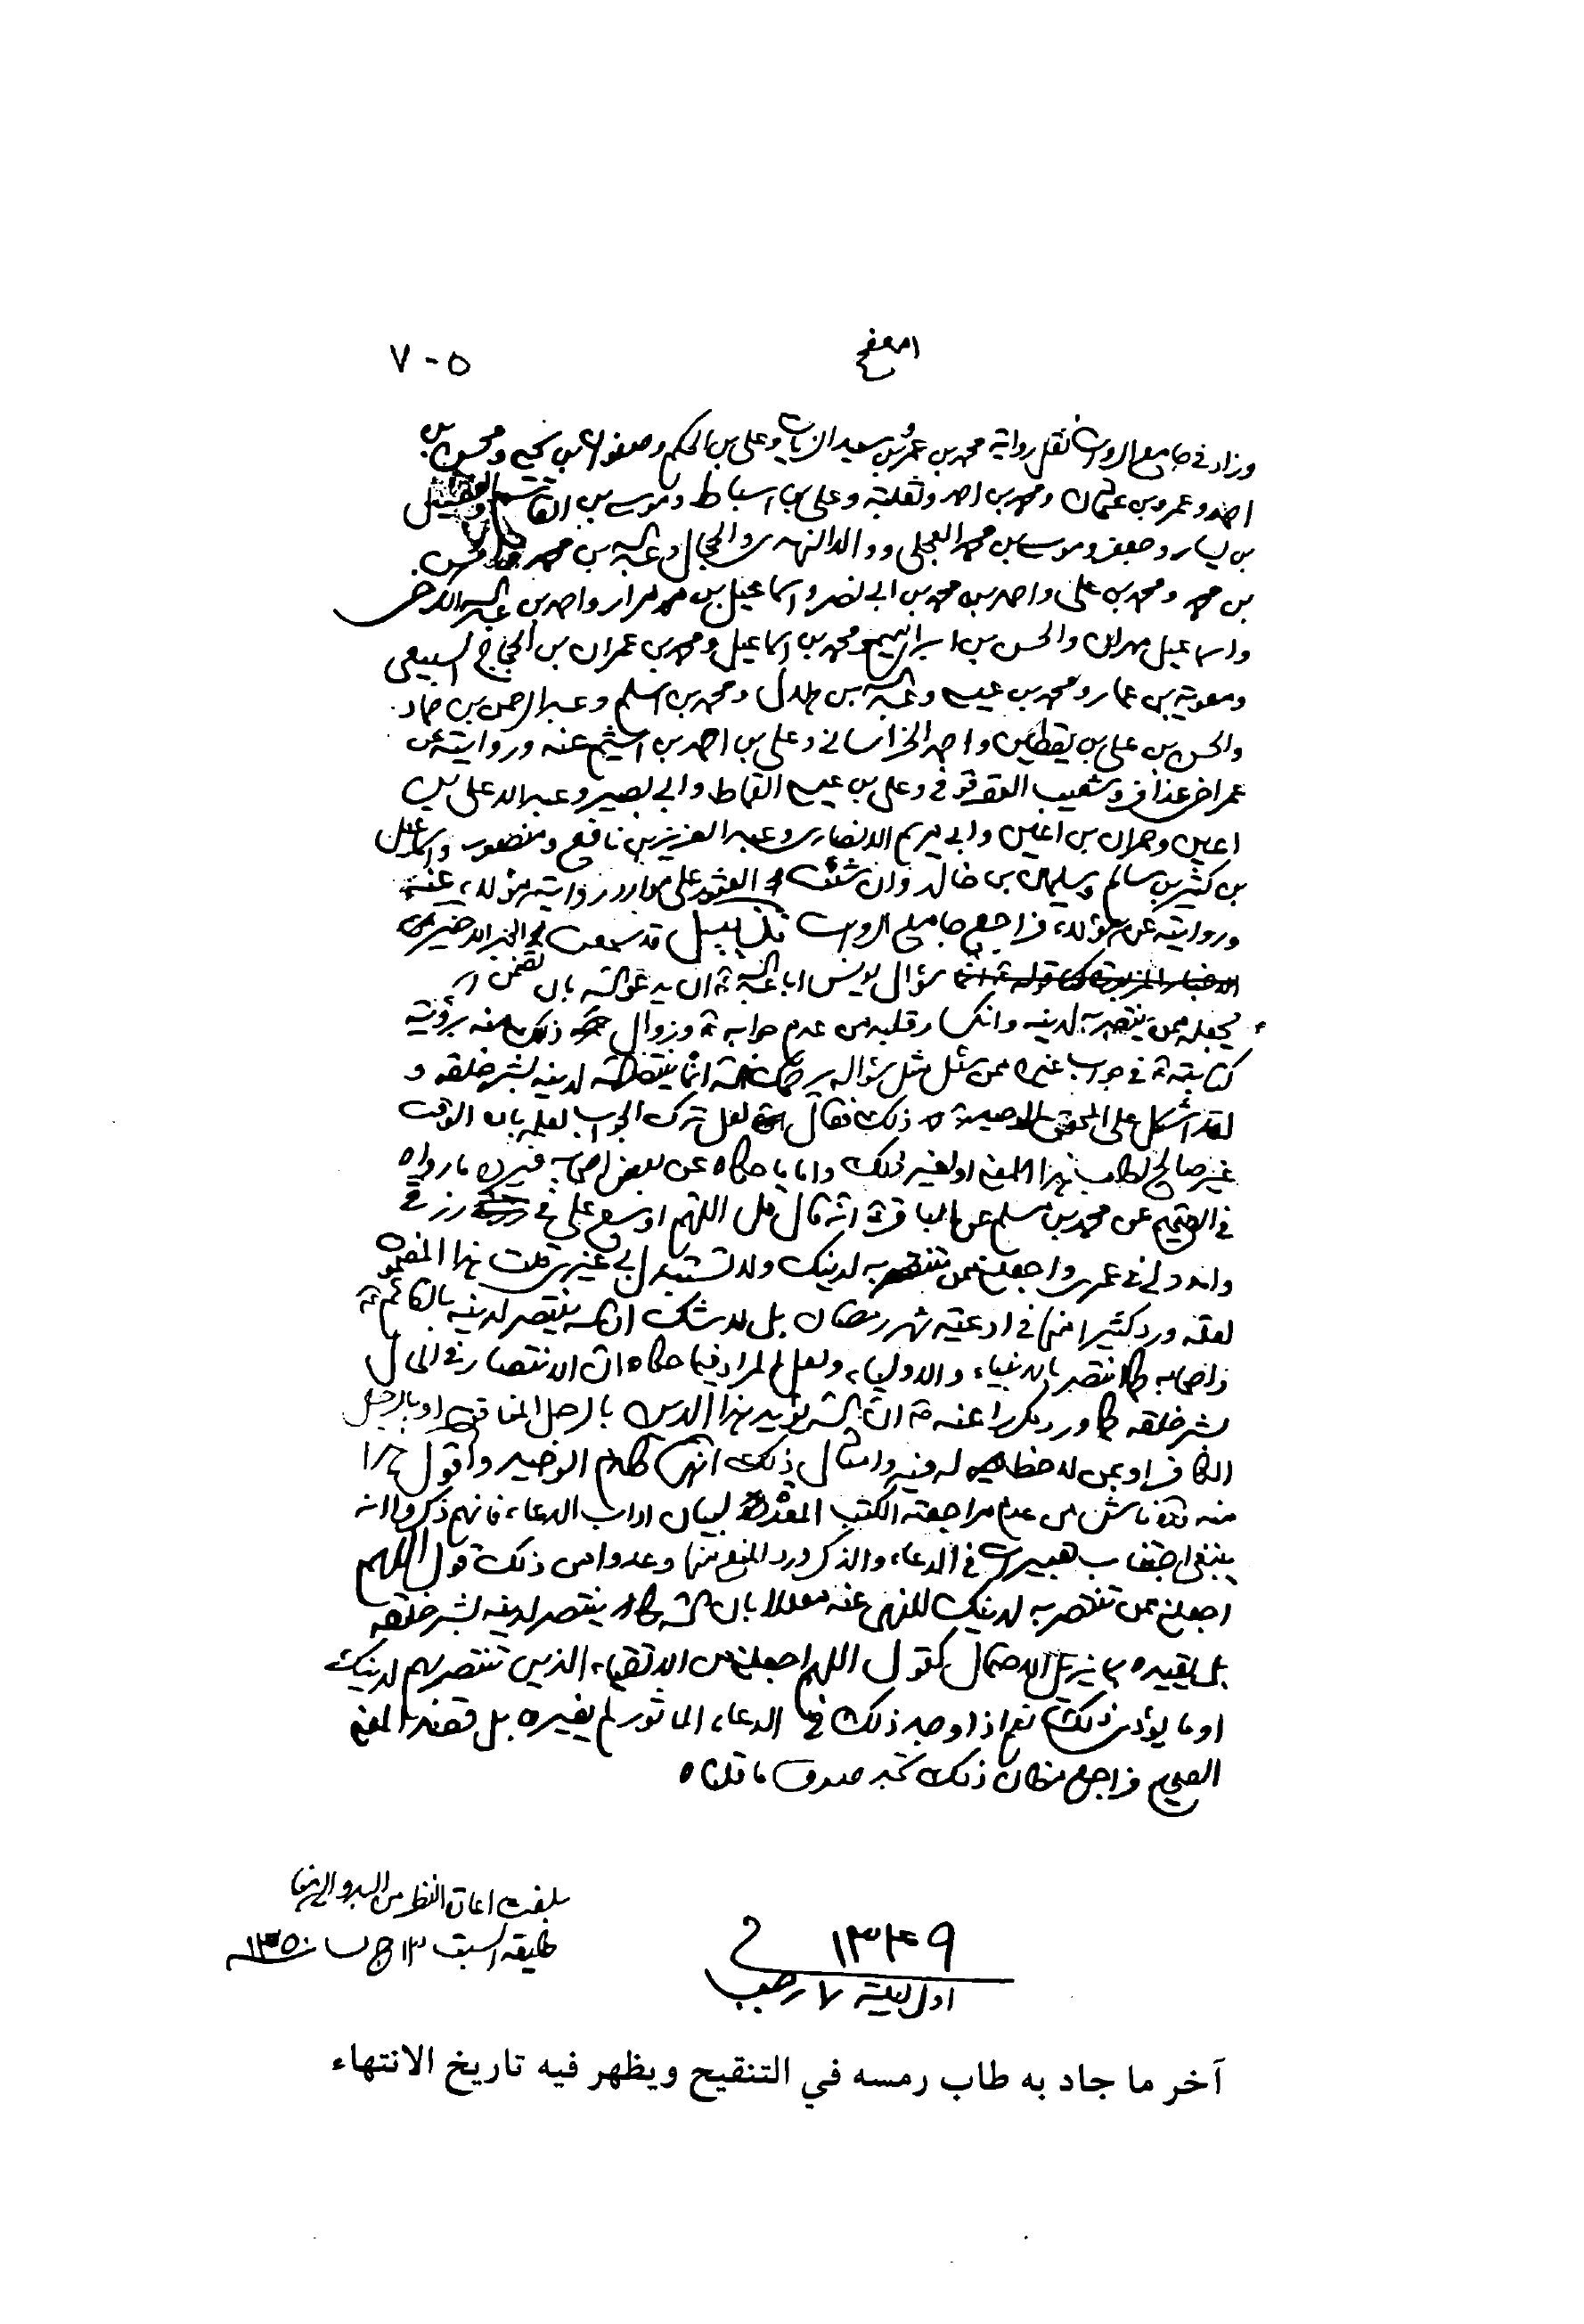 ٧-٥
وزاد في جامع الرواة نقل رواية محمد بن عمرو بن سعيد الزيات وعلي بن الحكم وصفوان بن يحيى ومحسن بن
احمد وعمرو بن عثمان ومحمد بن احمد وثعلبة وعلي بن اسباط وموسى بن القاسم
بن يسار وجعفر وموسى بن محمد العجلي ووالد النهدي والحجال وعبدالله بن محمد
بن محمد ومحمد بن علي واحمد بن محمد بن ابي نصر واسماعيل بن مرار واحمد بن عبدالله الكرخي
واسماعيل مهران والحسن بن ابراهيم ومحمد بن اسماعيل ومحمد بن عمران بن الحجاج السبيعي
ومعوية بن عمار ومحمد بن عيسى وعبدالله بن هلال ومحمد بن اسلم وعبد الرحمن بن حماد
والحسن بن علي بن يقطين واحمد الخراساني وعلي بن احمد بن اشيم عنه وروايته عن
عمر اخي عذافر وشعيب العقرقوفي وعلي بن عيسى القماط وابي بصير وعبد الاعلى بن
اعين وحمران بن اعين وابي مريم الانصاري وعبد العزيز بن نافع ومنصور واسماعيل
بن كثير بن سالم وسليمان بن خالد وان شئت العثور على موارد رواية هؤلاء عنه
وروايته عن هؤلاء فراجع جامع الرواة تذييل قد سمعت الخبر الاخير من
سؤال يونس ابا عبدالله ان يدعو الله بان
يجعله ممن ينتصر به لدينه وانكسار قلبه من عدم جوابه وزوال ذلك منه برؤية
كتابته في جواب غيره ممن سئل مثل سؤاله انما ينتصر الله لدينه بشر خلقه و
لقد اشكل على المحقق الوحيد ذلك فقال لعل ترك الجواب لعلمه بان الوقت
غير صالح لطلب هذا المعنى او لغير ذلك واما ما حكاه عن بعض اصحابه فيرده ما رواه
في الصحيح عن محمد بن مسلم عن الباقر انه قال قل اللهم اوسع علي في رزقي
وامدد لي في عمري واجعلني ممن تنتصر به لدينك ولا تستبدل بي غيري قلت هذا المضمون
لعله ورد كثيرا منها في ادعية شهر رمضان بل لا شك ان الله ينتصر لدينه بالقائم
واصحابه كما انتصر بالانبياء والاولياء ولعل المراد فيما حكاه ان الانتصار في الحال
بشر خلقه كما ورد مكررا عنه ان الله يؤيد هذا الدين بالرجل المنافق او بالرجل
الكافر او بمن لا حظ له فيه وامثال ذلك انتهى كلام الوحيد واقول هذا
منه ناش من عدم مراجعة الكتب المعدة لبيان اداب الدعاء فانهم ذكروا انه
ينبغي اجتناب في الدعاء والذكر ورد المنع منها وعدوا من ذلك قول اللهم
اجعلني ممن تنتصر به لدينك للنهي عنه معللا بان الله ينتصر لدينه بشر خلقه
بل يقيده بما يزيل الاحتمال كقول اللهم اجعلني من الاتقياء الذين تنتصر بهم لدينك
او ما يؤدي ذلك نعم اذا وجد ذلك في الدعاء الماثور لم يغيره بل قصد المعنى
الصحيح فراجع مظان ذلك تجد صدق ما قلناه
١٣٤٩
اول ليلة ٧ رجب
السبت ١٣٥٠
آخر ما جاد به طاب رمسه في التنقيح ويظهر فيه تاريخ الانتهاء